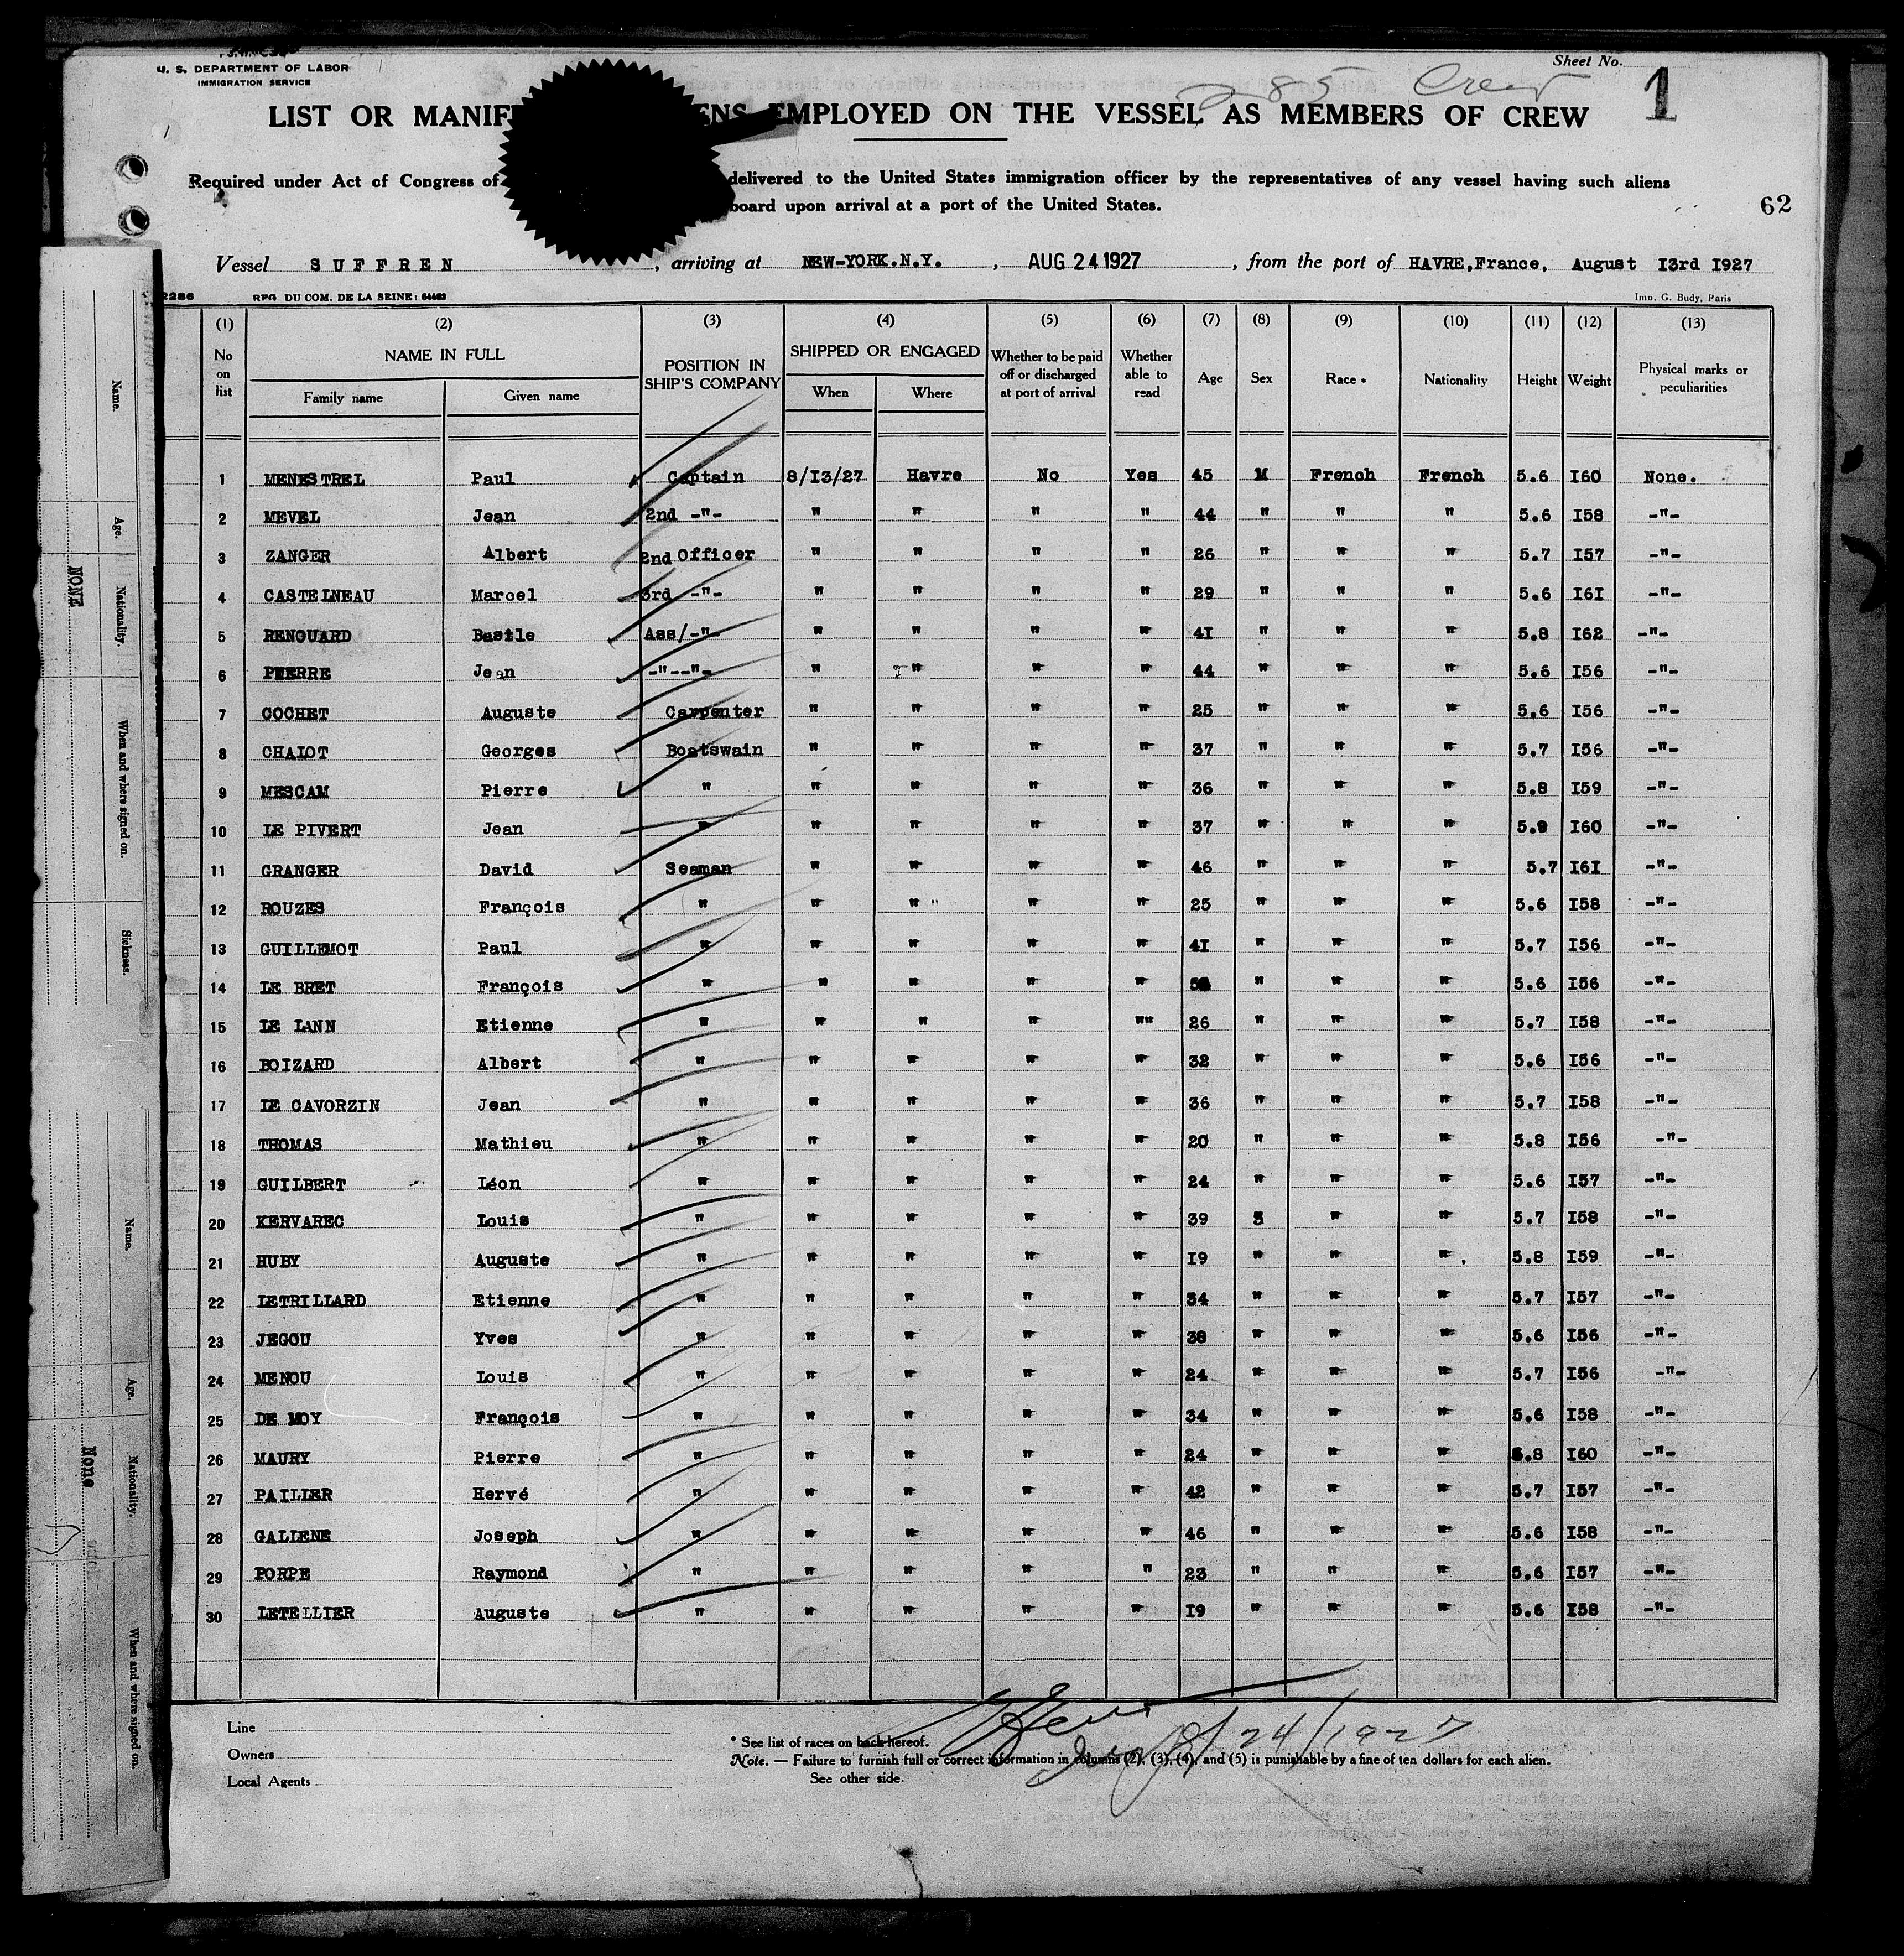 U. S. DEPARTMENT OF LABOR
IMMIGRATION SERVICE
Sheet No.
1
285 Crew
LIST OR MANIF ENS EMPLOYED ON THE VESSEL AS MEMBERS OF CREW
Required under Act of Congress of delivered to the United States immigration officer by the representatives of any vessel having such aliens
board upon arrival at a port of the United States.
62
Vessel SUFFREN, arriving at NEW-YORK.N.Y., AUG 24 1927, from the port of HAVRE,France, August I3rd I927
2286 REG DU COM. DE LA SEINE: 64483 Imp. G. Budy, Paris
(1) (2) (3) (4) (5) (6) (7) (8) (9) (10) (11) (12) (13)
No on list NAME IN FULL POSITION IN SHIP'S COMPANY SHIPPED OR ENGAGED Whether to be paid off or discharged at port of arrival Whether able to read Age Sex Race * Nationality Height Weight Physical marks or peculiarities
Family name Given name When Where
1 MENESTREL Paul Captain 8/I3/27 Havre No Yes 45 M French French 5.6 I60 None.
2 MEVEL Jean 2nd -"- " " " " 44 " " " 5.6 I58 -"-
3 ZANGER Albert 2nd Officer " " " " 26 " " " 5.7 I57 -"-
4 CASTELNEAU Marcel 3rd -"- " " " " 29 " " " 5.6 I6I -"-
5 RENOUARD Basile Ass/-"- " " " " 4I " " " 5.8 I62 -"-
6 PIERRE Jean -"--"- " " " " 44 " " " 5.6 I56 -"-
7 COCHET Auguste Carpenter " " " " 25 " " " 5.6 I56 -"-
8 CHALOT Georges Boatswain " " " " 37 " " " 5.7 I56 -"-
9 MESCAM Pierre " " " " " 36 " " " 5.8 I59 -"-
10 LE PIVERT Jean " " " " " 37 " " " 5.9 I60 -"-
11 GRANGER David Seaman " " " " 46 " " " 5.7 I6I -"-
12 ROUZES François " " " " " 25 " " " 5.6 I58 -"-
13 GUILLEMOT Paul " " " " " 4I " " " 5.7 I56 -"-
14 LE BRET François " " " " " " " " 5.6 I56 -"-
15 LE LANN Etienne " " " " "" 26 " " " 5.7 I58 -"-
16 BOIZARD Albert " " " " " 32 " " " 5.6 I56 -"-
17 LE CAVORZIN Jean " " " " " 36 " " " 5.7 I58 -"-
18 THOMAS Mathieu " " " " " 20 " " " 5.8 I56 -"-
19 GUILBERT Léon " " " " " 24 " " " 5.6 I57 -"-
20 KERVAREC Louis " " " " " 39 " " 5.7 I58 -"-
21 HUBY Auguste " " " " " I9 " " " 5.8 I59 -"-
22 LETRILLARD Etienne " " " " " 34 " " " 5.7 I57 -"-
23 JEGOU Yves " " " " " 38 " " " 5.6 I56 -"-
24 MENOU Louis " " " " " 24 " " " 5.7 I56 -"-
25 DE MOY François " " " " " 34 " " " 5.6 I58 -"-
26 MAURY Pierre " " " " " 24 " " " 5.8 I60 -"-
27 PAILLER Hervé " " " " " 42 " " " 5.7 I57 -"-
28 GALLENE Joseph " " " " " 46 " " " 5.6 I58 -"-
29 PORPE Raymond " " " " " 23 " " " 5.6 I57 -"-
30 LETELLIER Auguste " " " " " I9 " " " 5.6 I58 -"-
Line
Owners
Local Agents
8/24/1927
* See list of races on back hereof.
Note. — Failure to furnish full or correct information in columns (2), (3), (4), and (5) is punishable by a fine of ten dollars for each alien.
See other side.
Name.
Age.
Nationality.
NONE
When and where signed on.
Sickness.
Name.
Age.
Nationality.
None
When and where signed on.